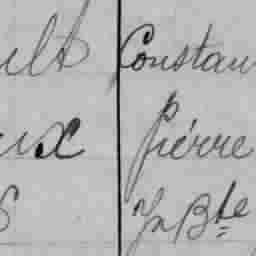 ult Constan
eux Pierre
s Jn Bte